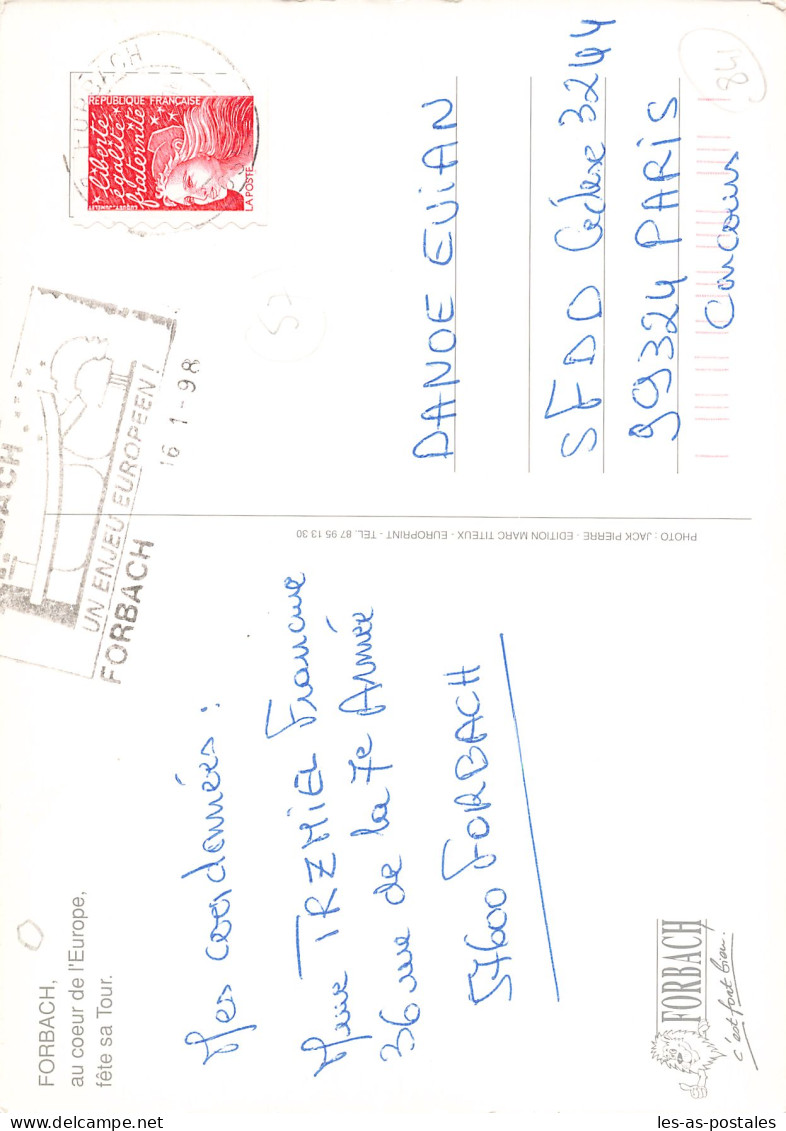 FORBACH,
au coeur de l'Europe,
fête sa Tour.
Mes coordonnées :
Mme TRZMIEL Francine
36 rue de la 7e Armée
57600 FORBACH
FORBACH
c'est fort bien.
PHOTO : JACK PIERRE - EDITION MARC TITEUX - EUROPRINT - TEL. 87 95 13 30
UN ENJEU EUROPEEN !
FORBACH
16-1-98
FORBACH
RÉPUBLIQUE FRANÇAISE
liberté
égalité
fraternité
LA POSTE
57
841
DANOE EVIAN
SFDD Cédex 3244
99324 PARIS
Concours
les-as-postales.com